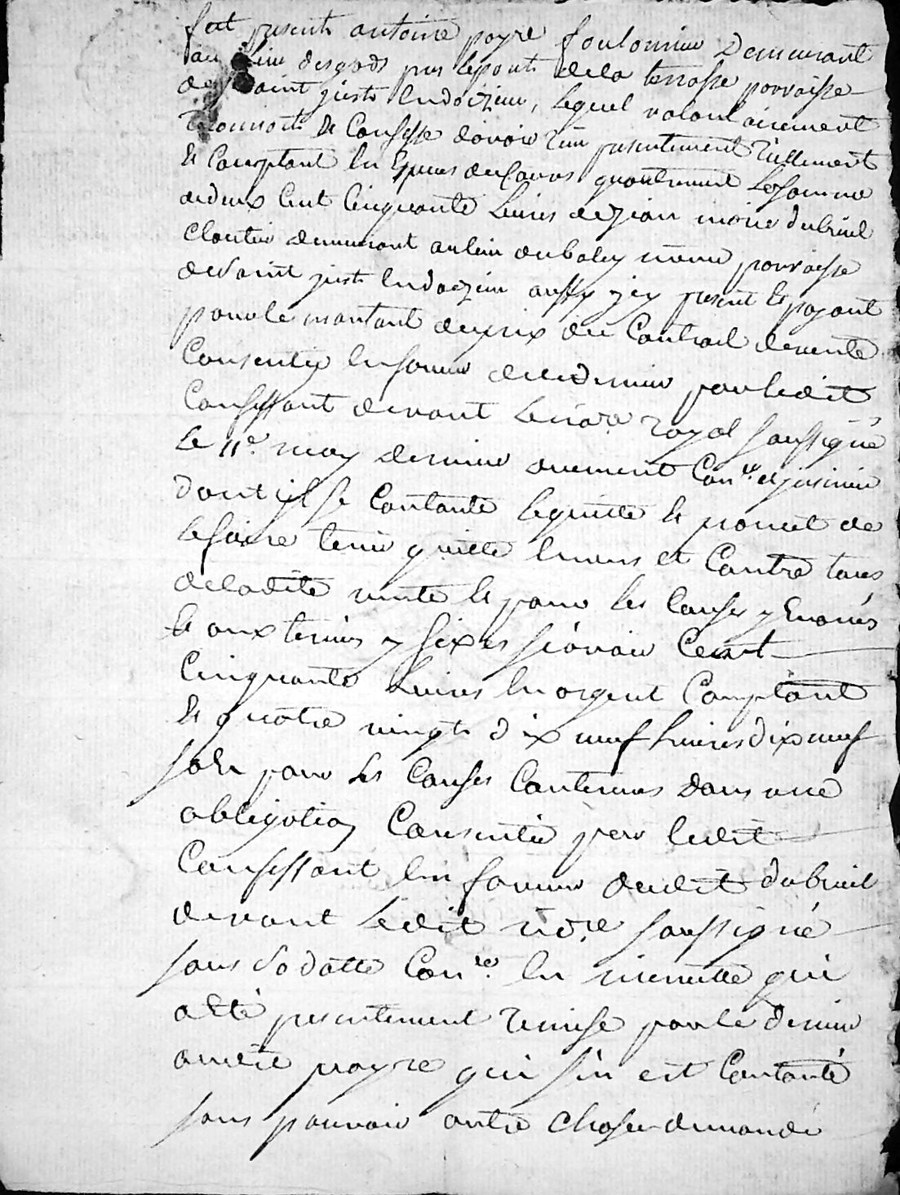 fut present antoine payre foulonnier Demeurant
au lieu desgods pres lepont dela terrasse parroisse
de Saint juste Endoizieu, lequel volontairement
Reconnoit & Confesse avoir Reçu presentement Réellement
& Comptant En Especes decours quontrement La somme
dedeux Cent Cinquante Livres dejean marie dubreuil
Cloutier demeurant aulieu dubaley même parroisse
deSaint juste Endoizieu aussy jcy present & payant
pour le montant duprix du Contrat devente
Consentie En faveur dudernier par ledit
Confessant devant Le nore royal soussigné
Le 11e may dernier duement Conlé
Dont il se Contante Lequitte & promet de
Lefaire tenir quitte Envers et Contre tous
deladite vente & pour les Causes y Enoncés
& aux termes y fixés sçavoir Cent
Cinquante Livres En argent Comptant
& quatre vingt dix neuf Livres dix neuf
sols pour les Causes Contenues dans une
obligation Consentie par ledit
Confessant En faveur dudit dubreuil
devant Ledit nore soussigné
sous Sa datte Conlée En minutte qui
a Eté presentement Remise par le dernier
audit payre qui s'En est Contanté
sans pouvoir autre chose demandé